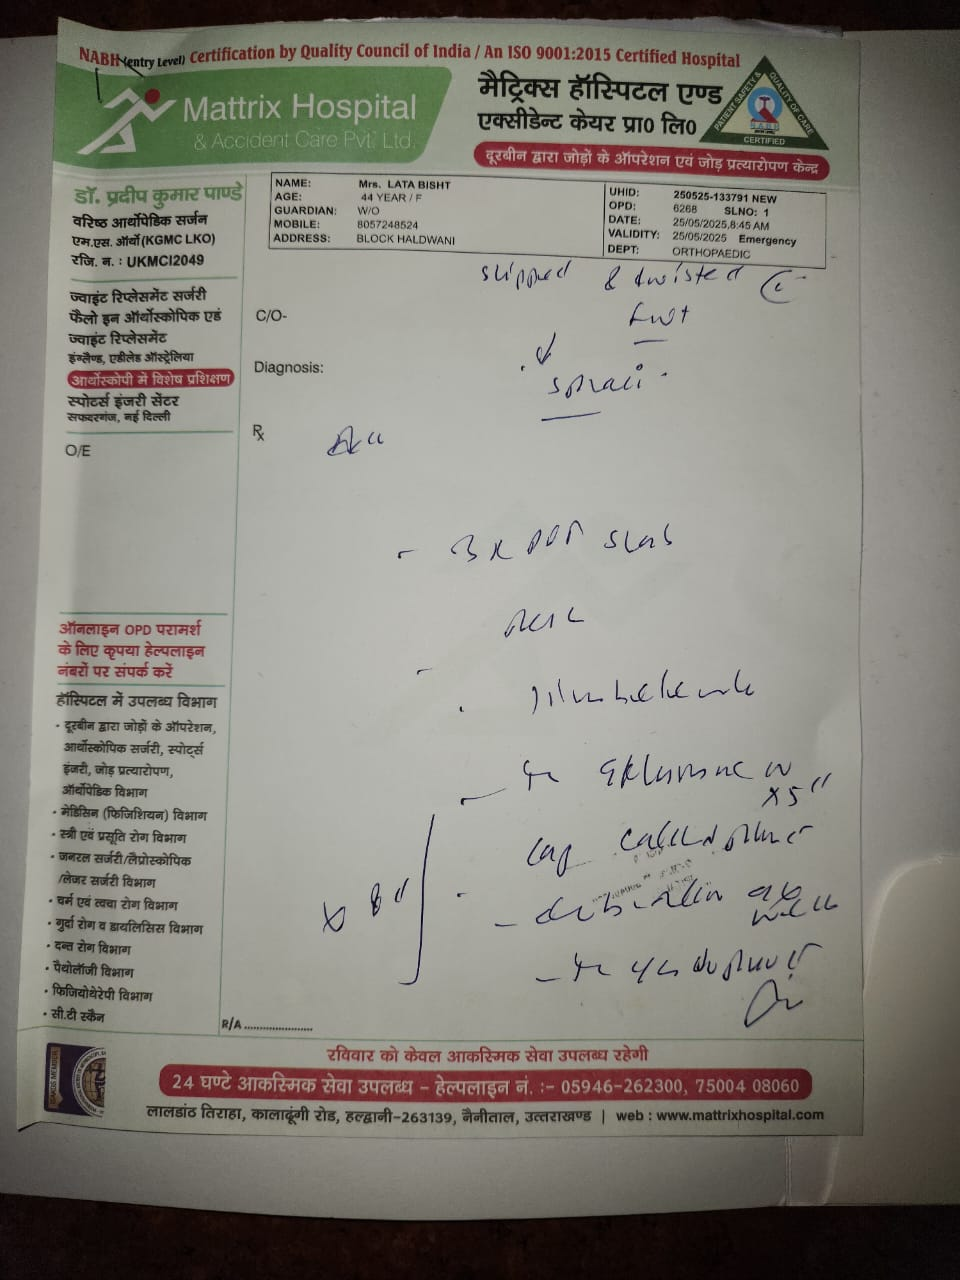 NABH (entry Level) Certification by Quality Council of India / An ISO 9001:2015 Certified Hospital
Mattrix Hospital
& Accident Care Pvt. Ltd.
मैट्रिक्स हॉस्पिटल एण्ड
एक्सीडेन्ट केयर प्रा0 लि0
दूरबीन द्वारा जोड़ों के ऑपरेशन एवं जोड़ प्रत्यारोपण केन्द्र
PATIENT SAFETY & QUALITY OF CARE
NABH
CERTIFIED
डॉ. प्रदीप कुमार पाण्डे
वरिष्ठ आर्थोपेडिक सर्जन
एम.एस. ऑर्थो (KGMC LKO)
रजि. न. : UKMCI2049
NAME: Mrs. LATA BISHT
AGE: 44 YEAR / F
GUARDIAN: W/O
MOBILE: 8057248524
ADDRESS: BLOCK HALDWANI
UHID: 250525-133791 NEW
OPD: 6268 SLNO: 1
DATE: 25/05/2025,8:45 AM
VALIDITY: 25/05/2025 Emergency
DEPT: ORTHOPAEDIC
ज्वाइंट रिप्लेसमेंट सर्जरी
फैलो इन ऑर्थोस्कोपिक एवं
ज्वाइंट रिप्लेसमेंट
इंग्लैण्ड, एडीलेड ऑस्ट्रेलिया
आर्थोस्कोपी में विशेष प्रशिक्षण
स्पोर्टस इंजरी सेंटर
सफदरगंज, नई दिल्ली
O/E
slipped & twisted
C/O-
Diagnosis:
Rx
slab
x 5
cap
ऑनलाइन OPD परामर्श
के लिए कृपया हेल्पलाइन
नंबरों पर संपर्क करें
हॉस्पिटल में उपलब्ध विभाग
• दूरबीन द्वारा जोड़ों के ऑपरेशन,
आर्थोस्कोपिक सर्जरी, स्पोर्ट्स
इंजरी, जोड़ प्रत्यारोपण,
ऑर्थोपेडिक विभाग
• मेडिसिन (फिजिशियन) विभाग
• स्त्री एवं प्रसूति रोग विभाग
• जनरल सर्जरी/लैप्रोस्कोपिक
/लेजर सर्जरी विभाग
• चर्म एवं त्वचा रोग विभाग
• गुर्दा रोग व डायलिसिस विभाग
• दन्त रोग विभाग
• पैथोलॉजी विभाग
• फिजियोथेरेपी विभाग
• सी.टी स्कैन
R/A
रविवार को केवल आकस्मिक सेवा उपलब्ध रहेगी
24 घण्टे आकस्मिक सेवा उपलब्ध – हेल्पलाइन नं. :- 05946-262300, 75004 08060
लालडांठ तिराहा, कालाढूंगी रोड, हल्द्वानी-263139, नैनीताल, उत्तराखण्ड | web : www.mattrixhospital.com